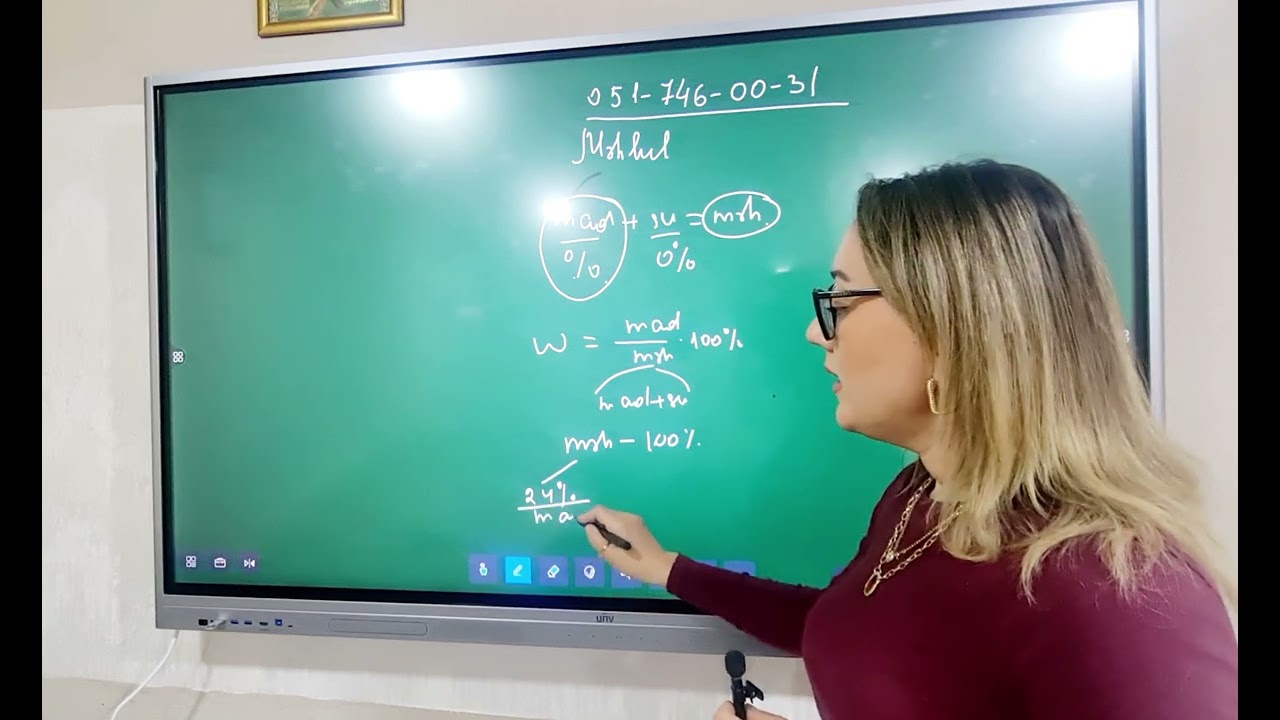 051-746-00-31
Məhlul
mad + su = məh
% 0%
W = mad/məh · 100%
mad+su
məh - 100%
24%
ma
unv